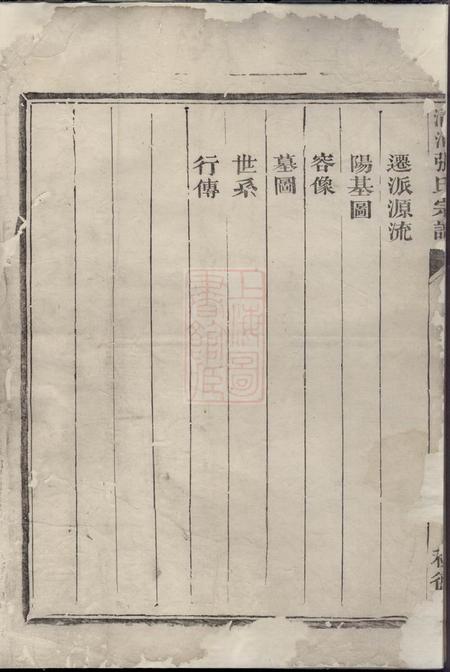 張氏宗譜
遷派源流
陽基圖
容像
墓圖
世系
行傳
上海圖
書館藏